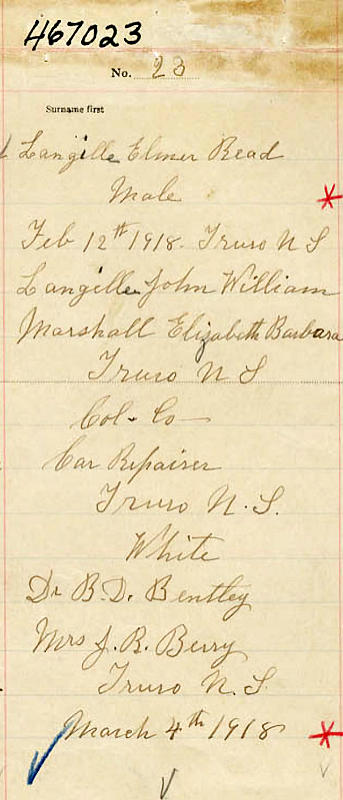 467023
No. 23
Surname first
Langille Elmer Read
Male
Feb 12th 1918. Truro N S
Langille John William
Marshall Elizabeth Barbara
Truro N S
Col. Co
Car Repairer
Truro N. S.
White
Dr B. D. Bentley
Mrs J. R. Berry
Truro N. S.
March 4th 1918